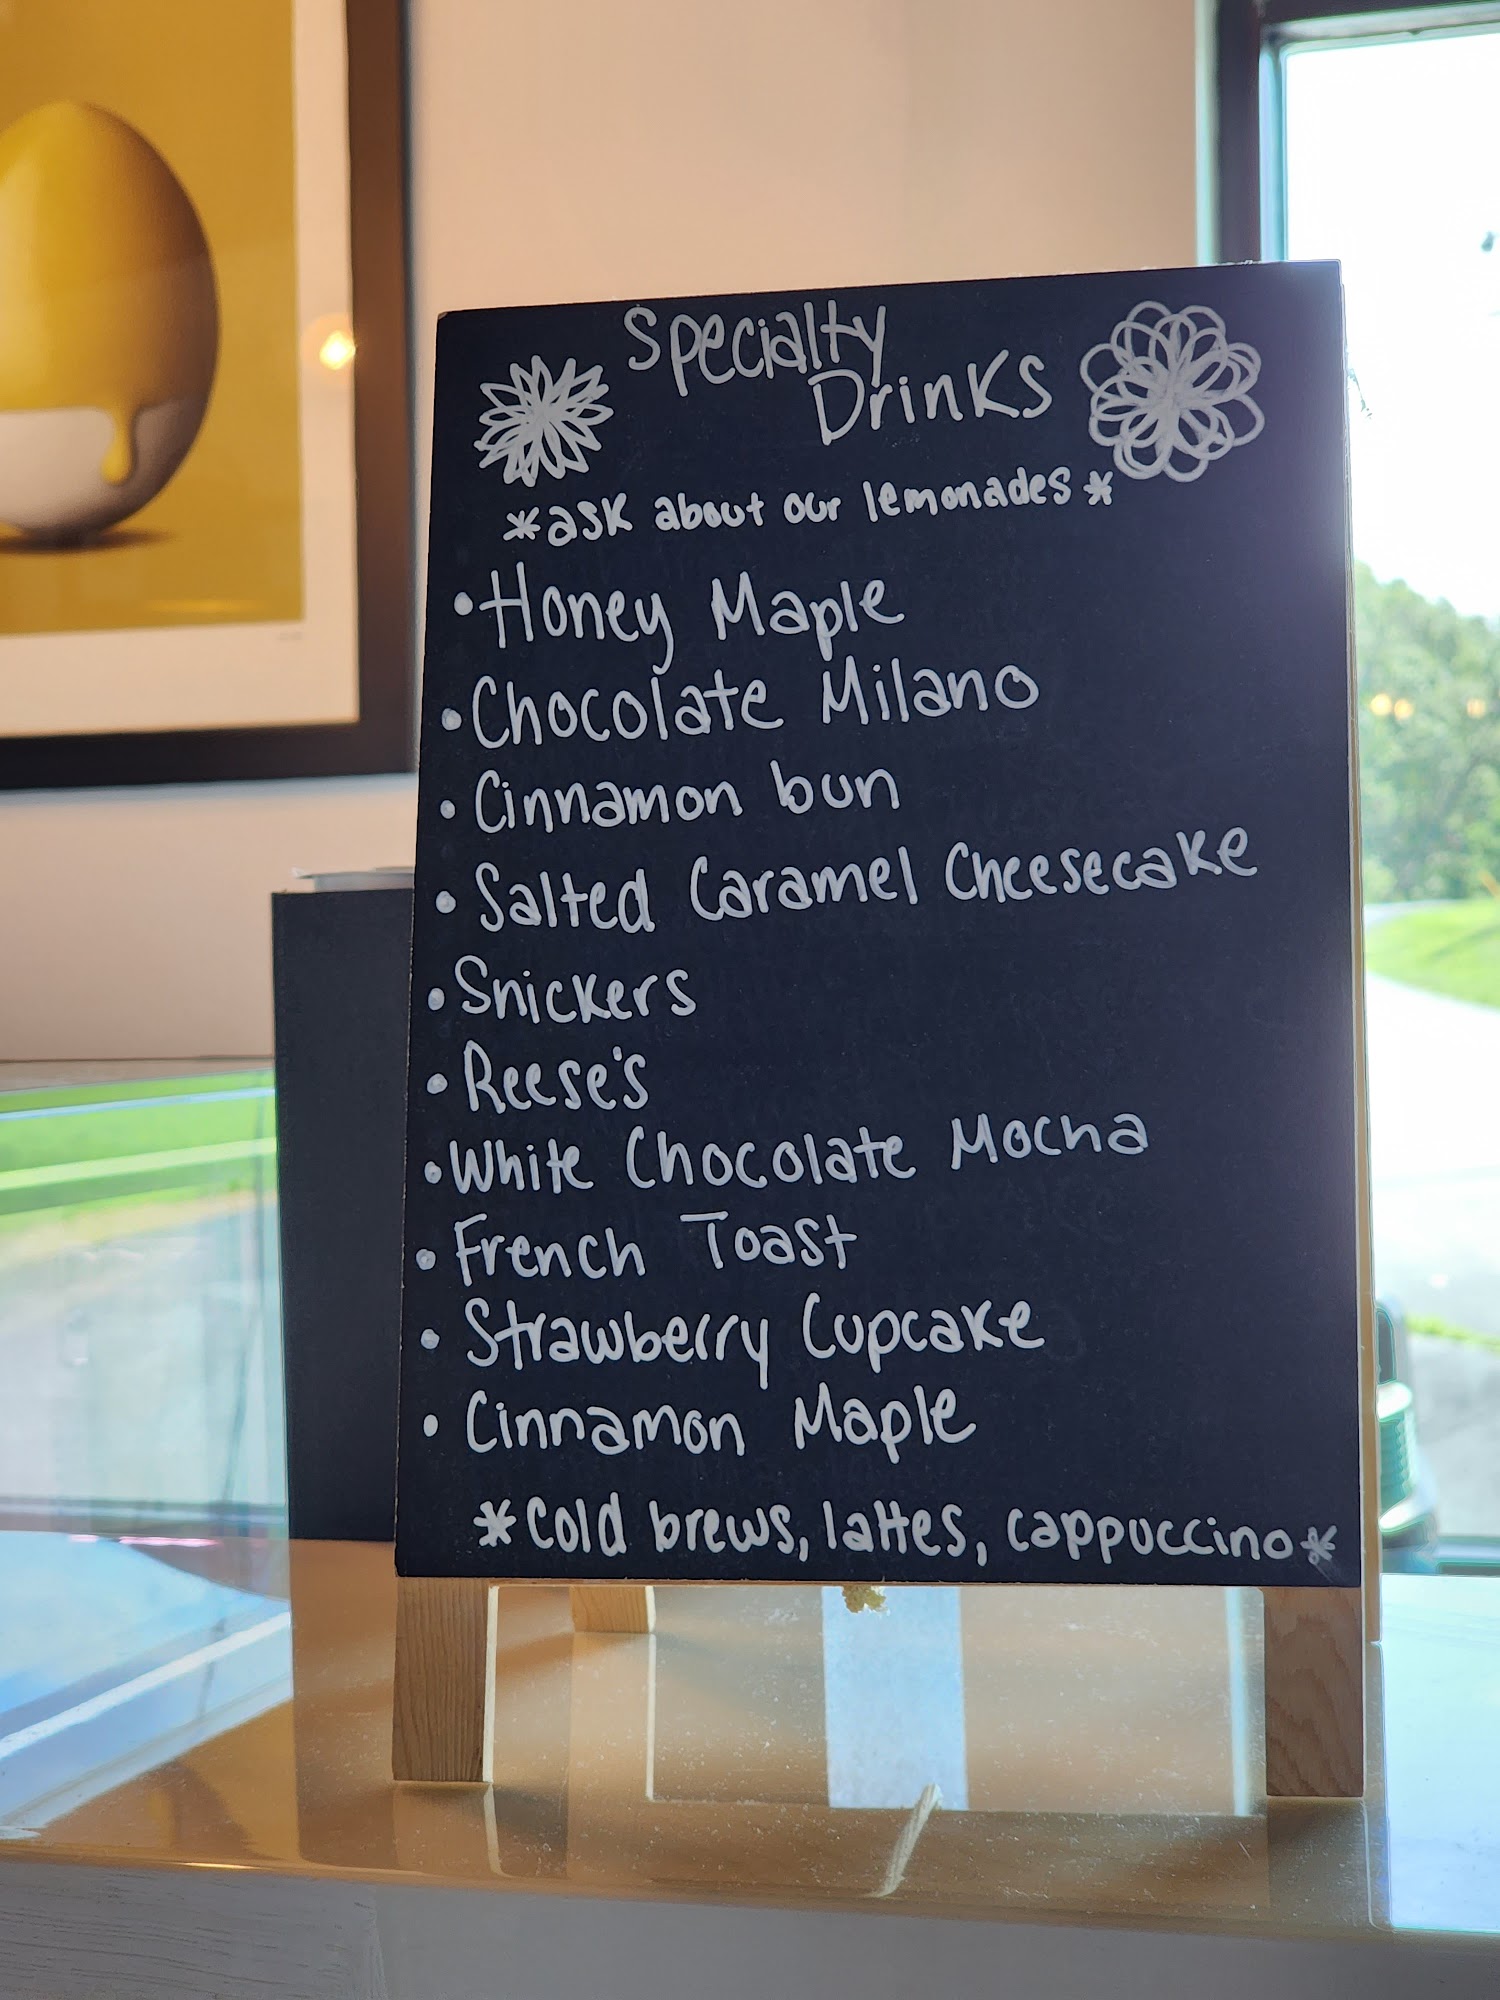 Specialty
Drinks
*ask about our lemonades*
• Honey Maple
• Chocolate Milano
• Cinnamon bun
• Salted Caramel Cheesecake
• Snickers
• Reese's
• White Chocolate Mocha
• French Toast
• Strawberry Cupcake
• Cinnamon Maple
*Cold brews, lattes, cappuccino*